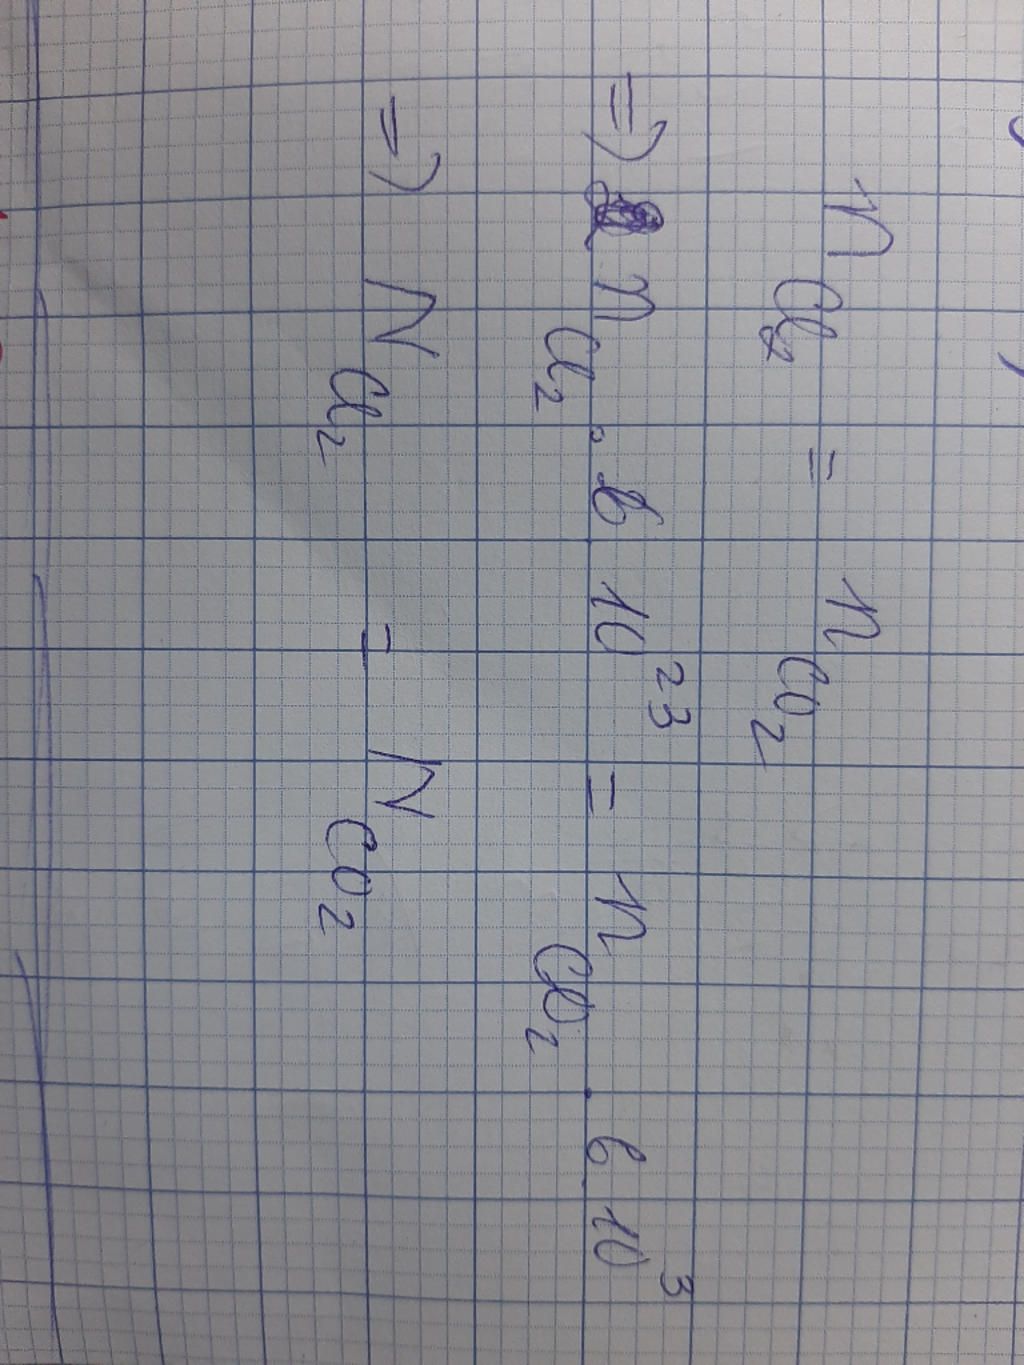 n Cl₂ = n CO₂
=> n Cl₂ . 6 10²³ = n CO₂ . 6 10³
=> N Cl₂ = N CO₂